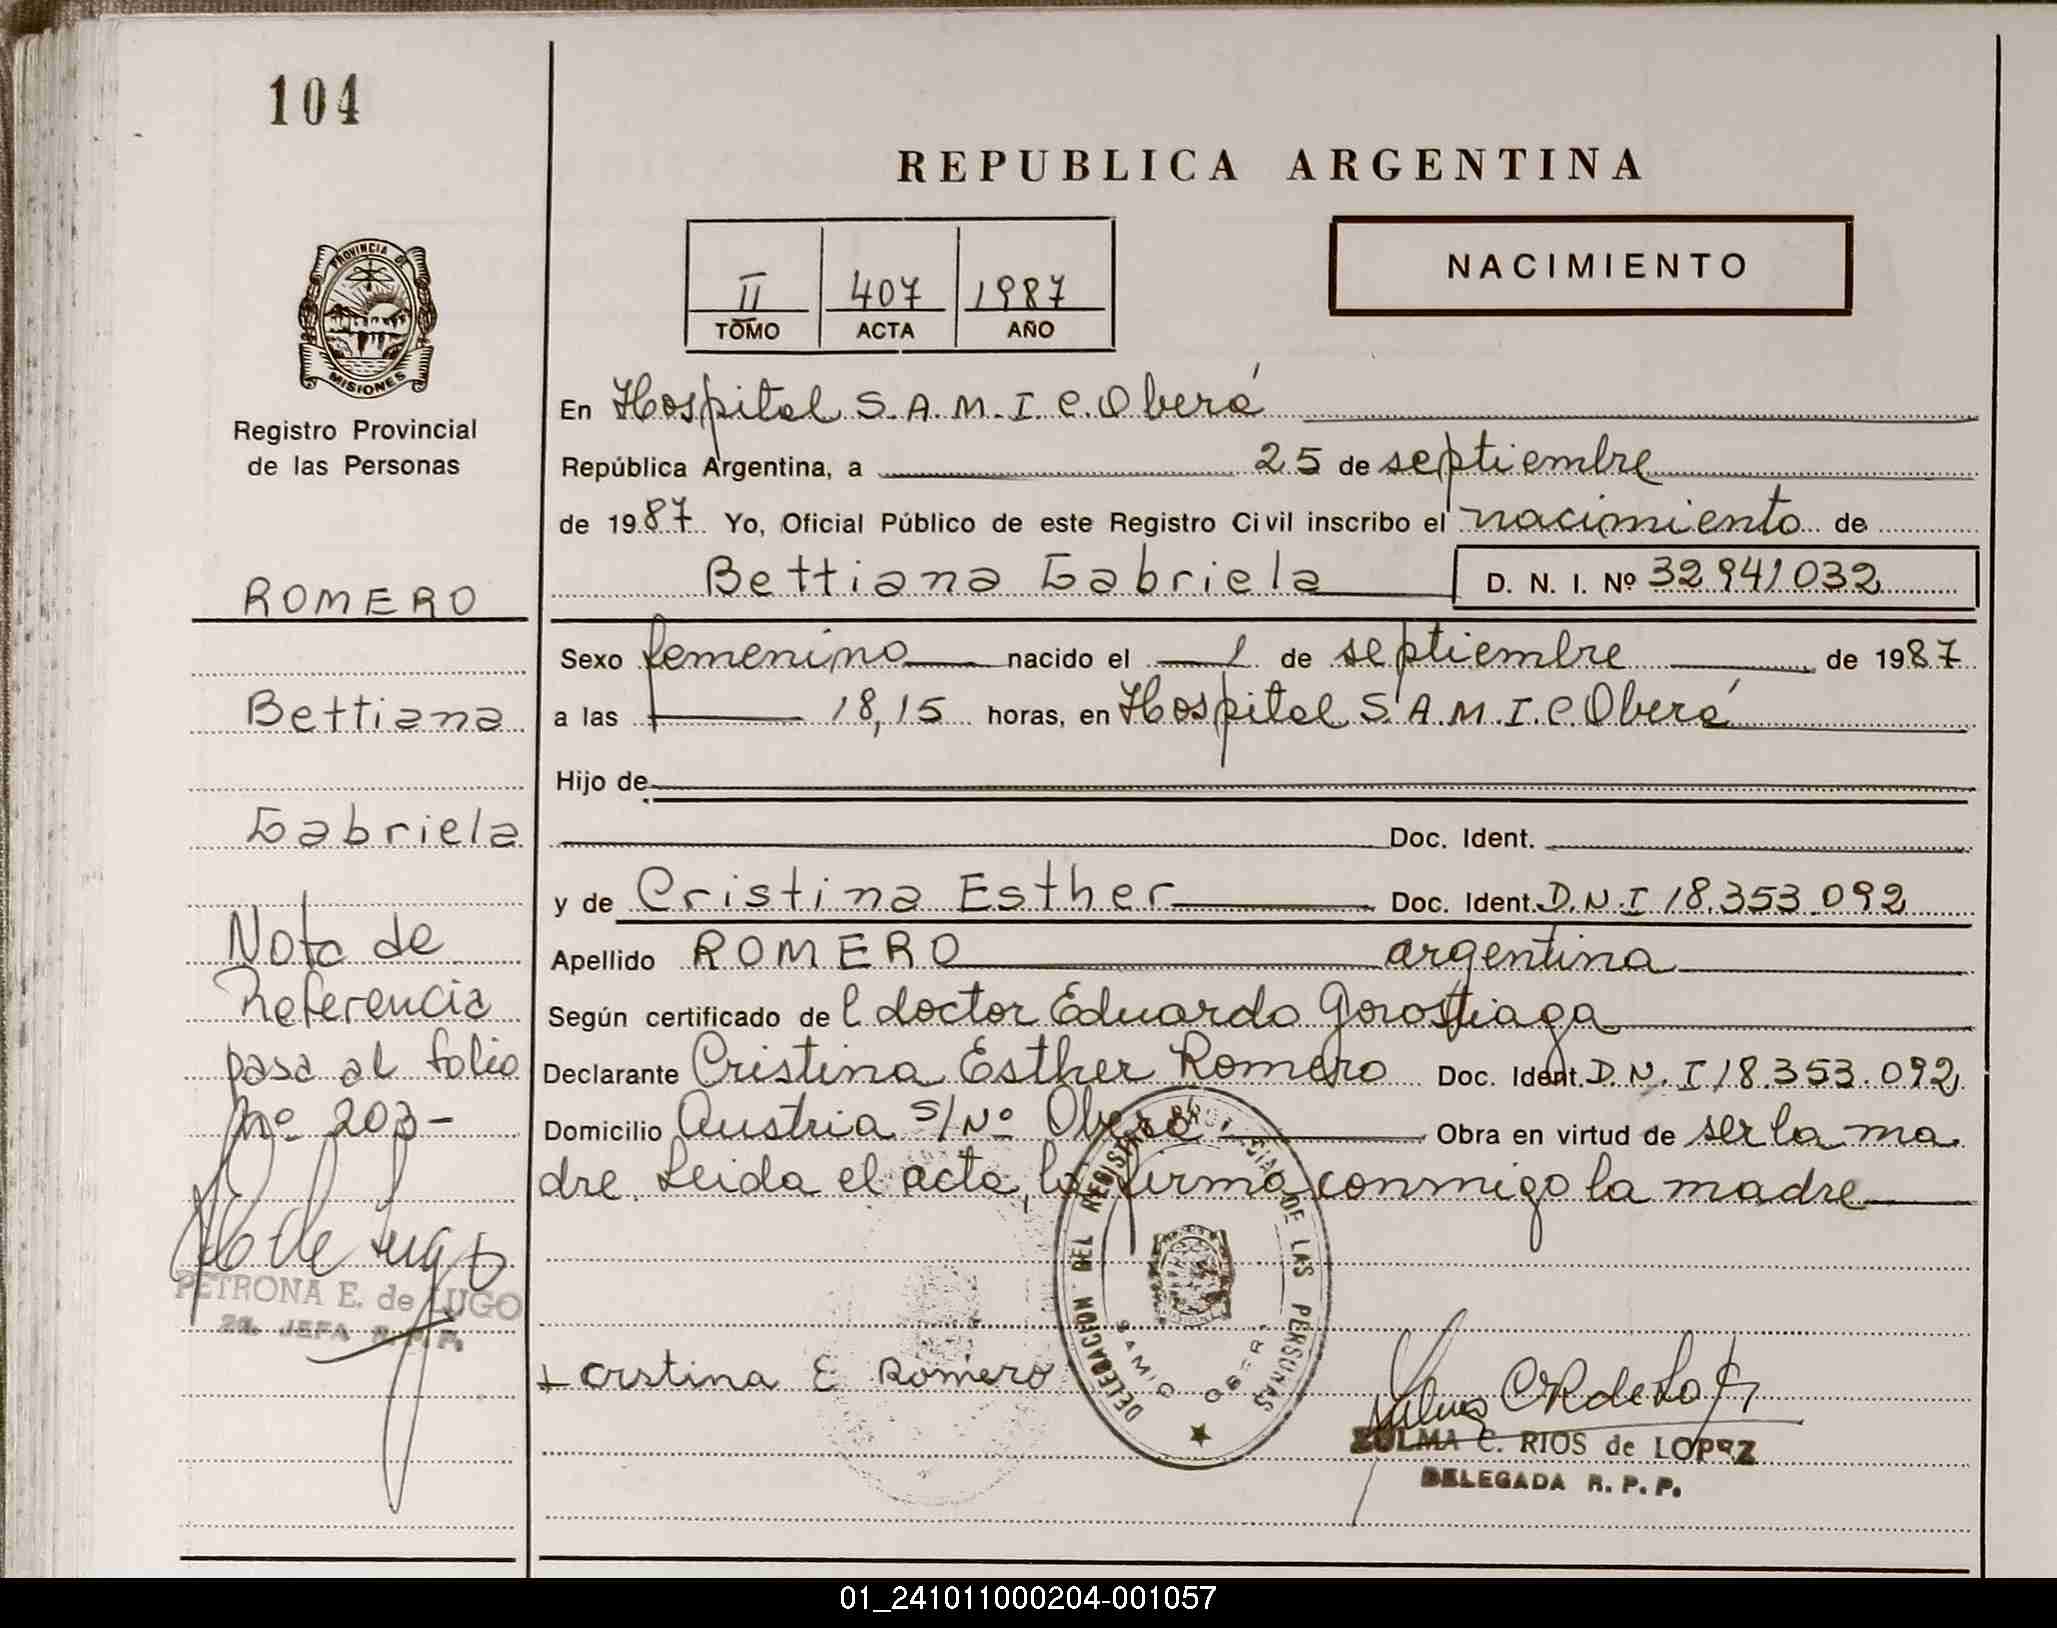 104
REPUBLICA ARGENTINA
NACIMIENTO
II 407 1987
TOMO ACTA AÑO
PROVINCIA DE
MISIONES
Registro Provincial
de las Personas
ROMERO
Bettiana
Gabriela
Nota de
Referencia
pasa al folio
Nº 203-
PETRONA E. de LUGO
2a. JEFA R. P. P.
En Hospital S.A.M.I.C. Oberá
República Argentina, a 25 de septiembre
de 1987 Yo, Oficial Público de este Registro Civil inscribo el nacimiento de
Bettiana Gabriela D. N. I. Nº 32.941.032
Sexo femenino nacido el 1 de septiembre de 1987
a las 18,15 horas, en Hospital S.A.M.I.C. Oberá
Hijo de
Doc. Ident.
y de Cristina Esther Doc. Ident. D.N.I 18.353.092
Apellido ROMERO argentina
Según certificado de l doctor Eduardo Gorostiaga
Declarante Cristina Esther Romero Doc. Ident. D.N.I 18.353.092
Domicilio Austria s/Nº Oberá Obra en virtud de ser la ma
dre. Leida el acta, la firma conmigo la madre
DELEGACION DEL REGISTRO PROVINCIAL DE LAS PERSONAS
+ Crstina E Romero
ZULMA C. RIOS de LOPEZ
DELEGADA R. P. P.
01_241011000204-001057